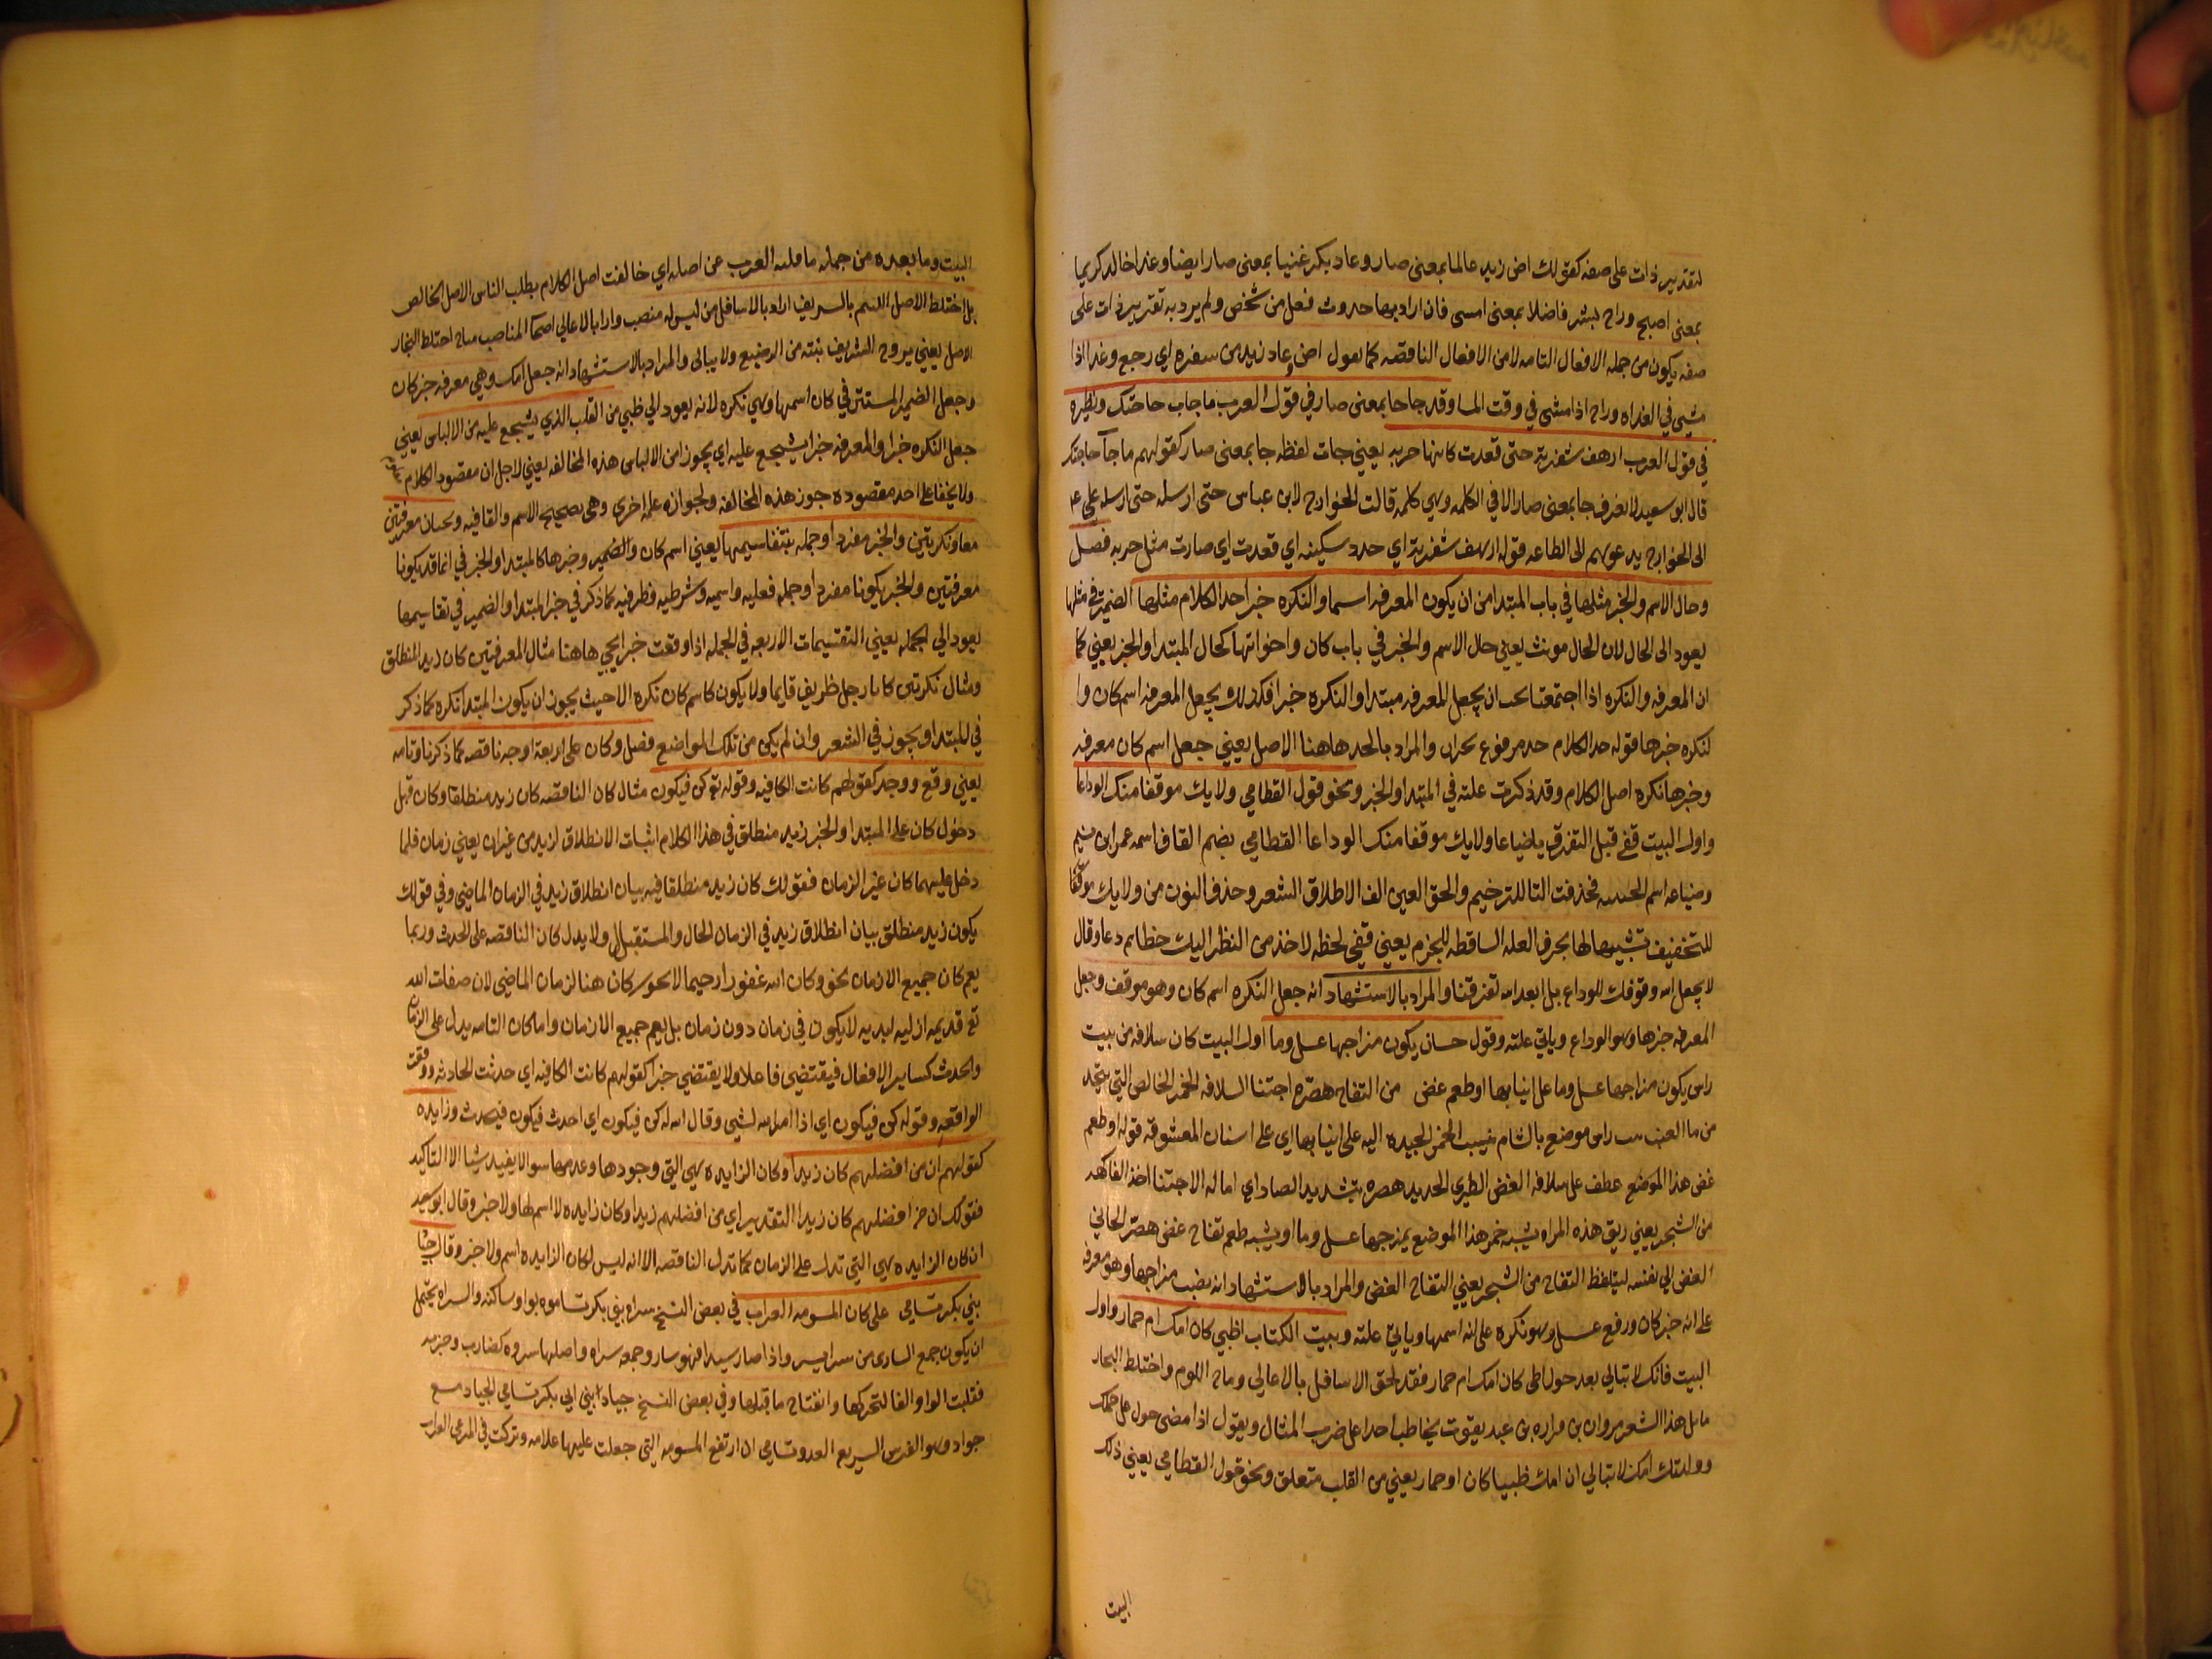 لتقدير ذات على صفه كقولك اض زيد عالما بمعنى صار وعاد بكر غنيا بمعنى صار ايضا وغدا خالد كريما
بمعنى اصبح وراح بشر فاضلا بمعنى امسى فان اراد بها حدوث فعل من شخص ولم يرد به تقدير ذات على
صفه يكون من جمله الافعال التامه لا من الافعال الناقصه كما يقول اض وعاد زيد من سفره اي رجع وغدا اذا
مشى في الغداه وراح اذا مشى في وقت المسا وقد جا جا بمعنى صار في قول العرب ما جاب حاجتك ونظيره
في قول العرب ارهف شفرته حتى قعدت كانها حربه يعني جات لفظه جا بمعنى صار كقولهم ما جات حاجتك
قال ابو سعيد لا نعرف جا بمعنى صار الا في الكلمه وهي كلمه قالت الخوارج لابن عباس حتى ارسله حتى ارسله علي عم
الى الخوارج يدعوهم الى الطاعه قوله ارهف شفرته اي حدد سكينه اي قعدت اي صارت مثل حربه فصل
وحال الاسم والخبر مثلها في باب المبتدا من ان يكون المعرفه اسما والنكره خبرا حد الكلام مثلها الضمير في مثلها
يعود الى الحال لان الحال مونث يعني حال الاسم والخبر في باب كان واخواتها كحال المبتدا والخبر يعني كما
ان المعرفه والنكره اذا اجتمعتا يجب ان يجعل المعرفه مبتدا والنكره خبرا فكذلك يجعل المعرفه اسم كان وا
لنكره خبرها قوله حد الكلام حد مرفوع والمراد بالحد هاهنا الاصل يعني جعل اسم كان معرفه
وخبرها نكره اصل الكلام وقد ذكرت علته في المبتدا والخبر ونحو قول القطامي ولا يك موقفا منك الوداعا
واول البيت قفي قبل التفرق ياضباعا ولا يك موقفا منك الوداعا القطامي بضم القاف اسمه عمر ابن شيم
وضباعه اسم فحذفت التا للترخيم والحق العين الف الاطلاق الشعر وحذف النون من ولا يك موقفا
للتخفيف تشبيها لها بحرف العله الساقطه للجزم يعني قفي لحظه لاخذ من النظر اليك حظا ثم دعا وقال
لا يجعل الله وقوفك للوداع بل ابعد الله تفرقنا والمراد بالاستشهاد انه جعل النكره اسم كان وهو موقف وجعل
المعرفه خبرها وهو الوداع وياتي علته وقول حسان يكون مزاجها عسل وما اول البيت كان سلافه من بيت
راس يكون مزاجها عسل وما على انيابها او طعم غض من التفاح هصره اجتنا السلافه الخمر الخالص التي يتخذ
من ما العنب بيت راس موضع بالشام ينسب الخمر الجيده اليه على انيابها اي على اسنان المعشوقه قوله او طعم
غض هذا الموضع عطف على سلافه الغض الطري الجديد هصره بتشديد الصاد اي اماله الاجتنا اخذ الفاكهه
من الشجر يعني ريق هذه المراه يشبه خمر هذا الموضع يمزجها عسل وما او يشبه طعم تفاح غض هصر الجاني
الغض الى نفسه ليلفظ التفاح من الشجر يعني التفاح الغض والمراد بالاستشهاد انه نصب مزاجها وهو معرفه
على انه خبر كان ورفع عسل وهو نكره على انه اسمها وياتي علته وبيت الكتاب اظبي كان امك ام حمار واول
البيت فانك لا تبالي بعد حول اظبي كان امك ام حمار فقد لحق الاسافل بالاعالي وماج اللوم واختلط النجار
قايل هذا الشعر مروان بن فراره بن عبد يغوث يخاطب احدا على ضرب المثال ويقول اذا مضى حول على حملك
وولدتك امك لا تبالي ان امك ظبيا كان او حمار يعني من القلب متعلق ونحو قول القطامي يعني ذلك
البيت
البيت وما بعده من جمله ما قلبه العرب عن اصله اي خالفت اصل الكلام يطلب الناس الاصل الخالص
بل اختلط الاصل اللئيم بالشريف اراد بالاسافل من ليس له منصب واراد بالاعالي اصحاب المناصب ماج اختلط النجار
الاصل يعني يزوج الشريف بنته من الوضيع ولا يبالى والمراد بالاستشهاد انه جعل امك وهي معرفه خبر كان
وجعل الضمير المستتر في كان اسمها وهي نكره لانه يعود الى ظبي من القلب الذي يشجع عليه من الالباس يعني
جعل النكره خبرا والمعرفه خبرا يشجع عليه اي يجوز امن الالباس هذه المخالفه يعني لاجل ان مقصود الكلام
ولا يخفا على احد مقصوده جوز هذه المخالفه ولجوازه عله اخرى وهي تصحيح الاسم والقافيه ويجيان معرفتين
معا ونكرتين والخبر مفردا وجمله بتقاسيمها يعني اسم كان والضمير وخبرها كالمبتدا والخبر في انما قد يكونا
معرفتين والخبر يكونا مفردا وجمله فعليه واسميه وشرطيه وظرفيه كما ذكر في خبر المبتدا والضمير في تقاسيمها
يعود الى الجمله يعني التقسيمات الاربعه في الجمله اذا وقعت خبرا يجي هاهنا مثال المعرفتين كان زيد المنطلق
ومثال نكرتين كان رجل ظريف قايما ولا يكون كاسم كان نكره الا حيث يجوز ان يكون المبتدا نكره كما ذكر
في المبتدا ويجوز في الشعر وان لم يكن من تلك المواضع فصل وكان على اربعة اوجه ناقصه كما ذكرنا وتامه
يعني وقع ووجد كقولهم كانت الكافيه وقوله تع كن فيكون مثال كان الناقصه كان زيد منطلقا وكان قبل
دخول كان على المبتدا والخبر زيد منطلق في هذا الكلام اثبات الانطلاق لزيد من غير ان يعني زمان فلما
دخل عليهما كان غير الزمان فقولك كان زيد منطلقا فيه بيان انطلاق زيد في الزمان الماضي وفي قولك
يكون زيد منطلق بيان انطلاق زيد في الزمان الحال والمستقبل ولا يدل كان الناقصه على الحدث وربما
يعم كان جميع الازمان نحو وكان الله غفورا رحيما لا يجوز كان هنا لزمان الماضي لان صفات الله
تع قديمه ازليه ابديه لا يكون في زمان دون زمان بل يعم جميع الازمان واما كان التامه يدل على الزمان
والحدث كساير الافعال فيقتضى فاعلا ولا يقتضي خبرا كقولهم كانت الكافيه اي حدثت الحادثه ووقعت
الواقعه وقوله كن فيكون اي اذا امر الله لشي وقال له كن فيكون اي احدث فيكون فيحدث وزايده
كقولهم ان من افضلهم كان زيدا وكان الزايده هي التي وجودها وعدمها سوا لا يفيد شيا الا التاكيد
فقولك ان من افضلهم كان زيدا التقدير اي من افضلهم زيدا وكان زايده لا اسم لها ولا خبر وقال ابو سعيد
ان كان الزايده هي التي تدل على الزمان كما تدل الناقصه الا انه ليس لكان الزايده اسم ولا خبر وقال جيا
بني بكر تسامى على كان المسومه العراب في بعض النسخ سراه بني بكر تساموه بواو ساكنه والسراه يحتمل
ان يكون جمع السارى من واذا صار سيدا فهو سار وجمعه سراه واصلها سروه كضارب وضربه
فقلبت الواو الفا لتحركها وانفتاح ما قبلها وفي بعض النسخ جياد ابني ابي بكر تسامى الجياد جمع
جواد وهو الفرس السريع العدو تسامى ان ارتفع المسومه التي جعلت عليها علامه وتركت في المرعى العراب